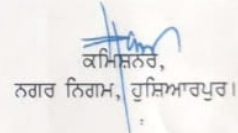 ਕਮਿਸ਼ਨਰ,
ਨਗਰ ਨਿਗਮ, ਹੁਸ਼ਿਆਰਪੁਰ।